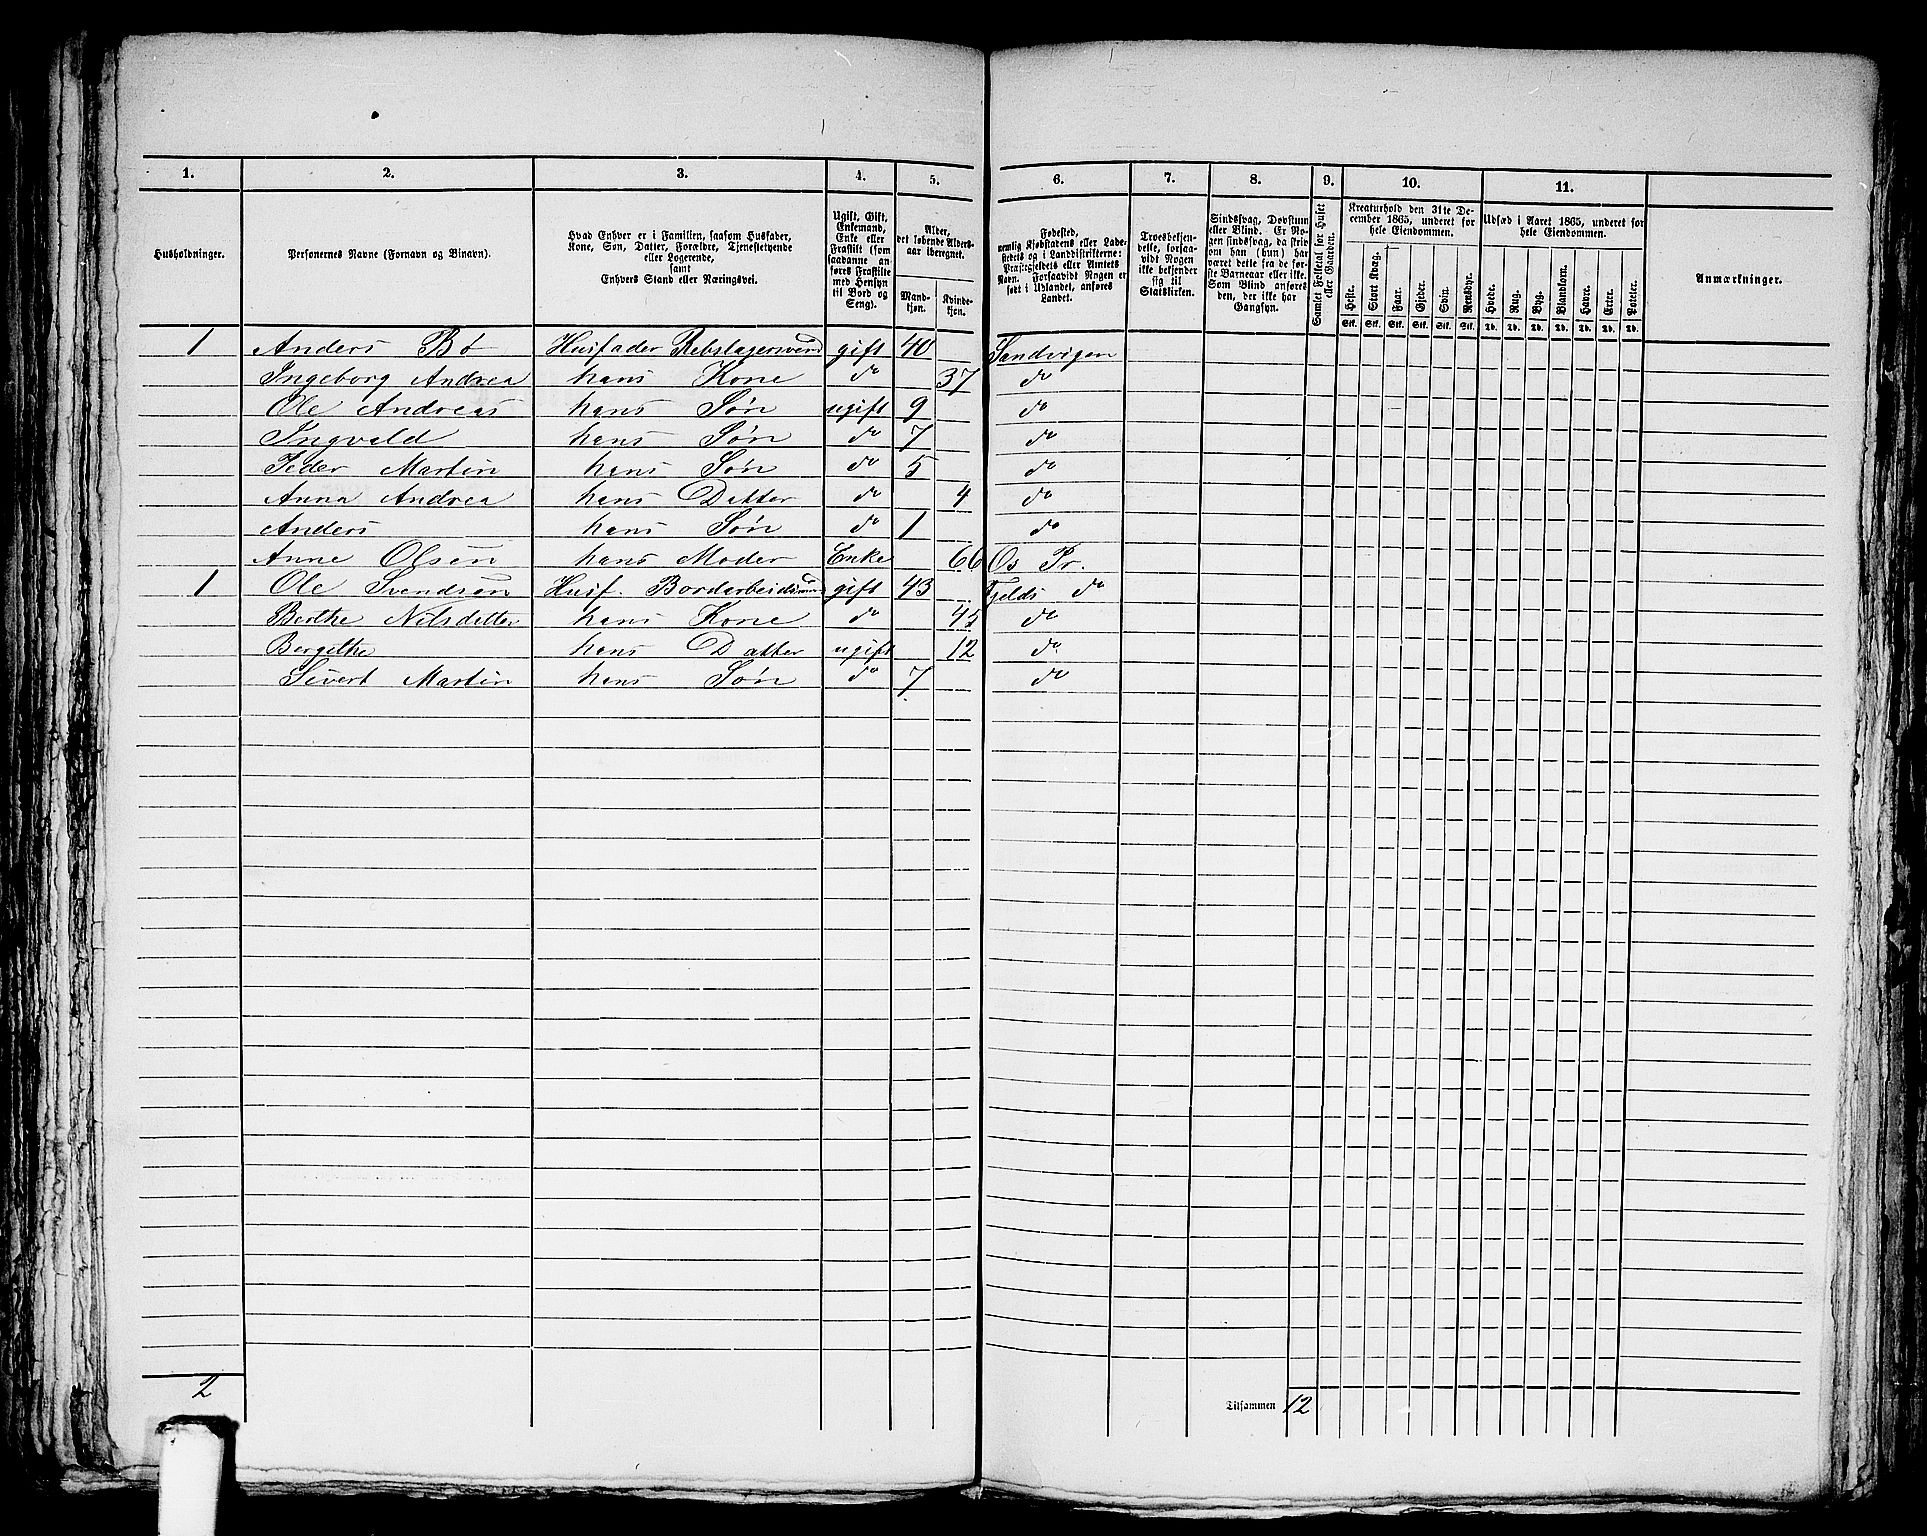 1. 2. 3. 4. 5. 6. 7. 8. 9. 10. 11.
Husholdninger.
Personernes Navne (Fornavn og Binavn).
Hvad Enhver er i Familien, saasom Husfader,
Kone, Søn, Datter, Forældre, Tjenestetyende
eller Logerende,
samt
Enhvers Stand eller Næringsvei.
Ugift, Gift,
Enkemand,
Enke eller
Fraskilt (som
saadanne an-
føres Fraskilte
med Hensyn
til Bord og
Seng).
Alder,
det løbende Alders-
aar iberegnet.
Mand-
kjøn.
Kvinde-
kjøn.
Fødested,
nemlig Kjøbstadens eller Lade-
stedets og i Landdistrikterne:
Præstegjeldets eller Amtets
Navn. Forsaavidt Nogen er
født i Udlandet, anføres
Landet.
Troesbekjen-
delse, forsaa-
vidt Nogen
ikke bekjender
sig til
Statskirken.
Sindssvag, Døvstum
eller Blind. Er No-
gen sindssvag, da skriv
om han (hun) har
været dette fra de før-
ste Barneaar eller ikke.
Som Blind anføres
den, der ikke har
Gangsyn.
Samlet Folketal for Huset
eller Gaarden.
Kreaturhold den 31te De-
cember 1865, underet for
hele Eiendommen.
Heste. Stort Kvæg. Faar. Gjeder. Svin. Rensdyr.
Stk. Stk. Stk. Stk. Stk. Stk.
Udsæd i Aaret 1865, underet for
hele Eiendommen.
Hvede. Rug. Byg. Blandkorn. Havre. Erter. Poteter.
Td. Td. Td. Td. Td. Td. Td.
Anmærkninger.
1 Anders Bø Husfader Rebslagersvend gift 40 Sandvigen
Ingeborg Andrea hans Kone do 37 do
Ole Andreas hans Søn ugift 9 do
Ingvald hans Søn do 7 do
Peder Martin hans Søn do 5 do
Anna Andrea hans Datter do 4 do
Anders hans Søn do 1 do
Anne Olsen hans Moder Enke 66 Os Pr.
1 Ole Svendsen Husf. gift 43 Fjelds do
Berthe Nilsdatter hans Kone do 45 do
Bergithe hans Datter ugift 12 do
Sivert Martin hans Søn do 7 do
2
Tilsammen 12